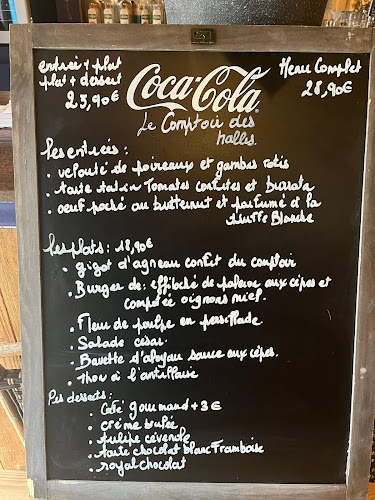 entrée + plat
plat + dessert
23,90€
Coca-Cola
Menu Complet
28,90€
Le Comptoir des
halles.
Les entrées :
• velouté de poireaux et gambas rotis
• tarte tatin Tomates confites et burrata
• oeuf poché au butternut et parfumé a la
truffe Blanche
Les plats : 18,90€
• gigot d'agneau confit du comptoir
• Burger de effiloché de paleron aux cèpes et
compotée oignons miel.
• Fleur de poulpe en persillade
• Salade cesar
• Bavette d'aloyau sauce aux cèpes.
• Thon à l'antillaise
Les desserts :
• Café gourmand + 3€
• crème brulée
• tulipe cévenole
• tarte chocolat blanc Framboise
• royal chocolat